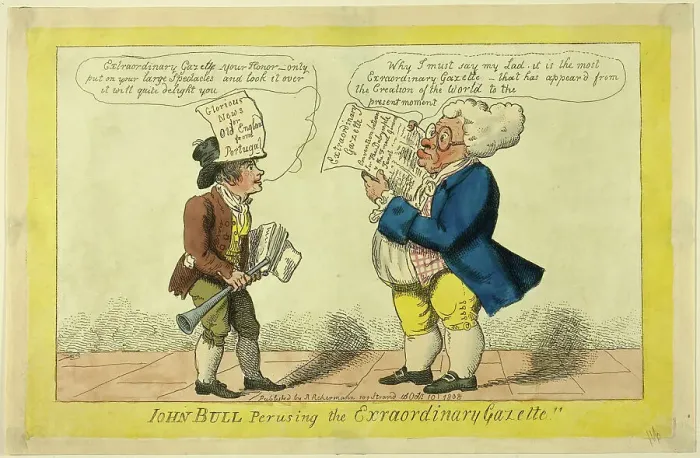 Extraordinary Gazette your Honor_only
put on your large Spectacles and look it over
it will quite delight you
Why I must say my Lad_it is the most
Exraordinary Gazette _ that has appear'd from
the Creation of the World to the
present moment
Glorious
News
for
Old England
from
Portugal
Extraordinary
Gazette
Convention
French
Published by R Ackermann 101 Strand Oct 10 1808
JOHN BULL Perusing the Exraordinary Gazette"